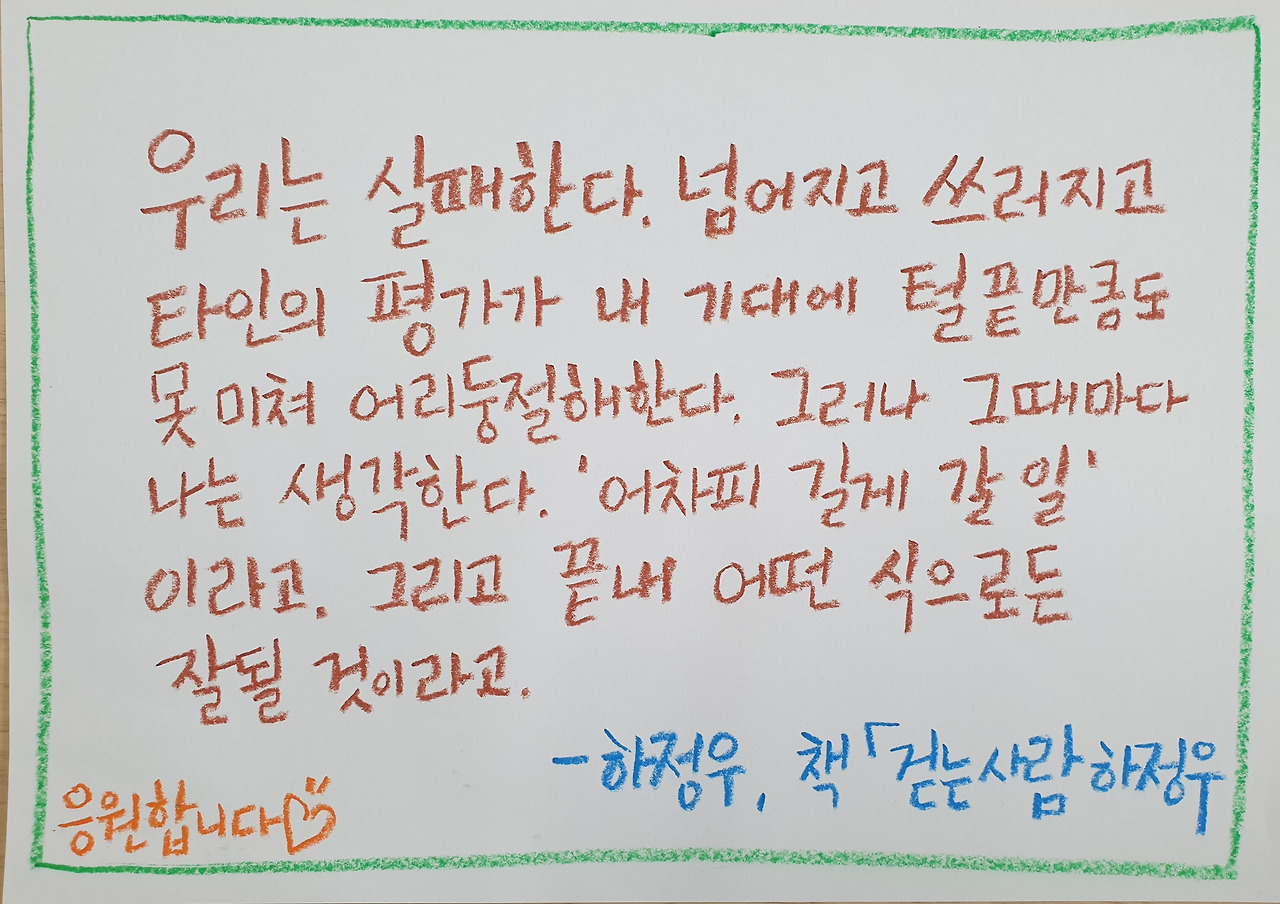 우리는 실패한다. 넘어지고 쓰러지고
타인의 평가가 내 기대에 털끝만큼도
못 미쳐 어리둥절해한다. 그러나 그때마다
나는 생각한다. '어차피 길게 갈 일'
이라고. 그리고 끝내 어떤 식으로든
잘될 것이라고.
-하정우, 책「걷는사람 하정우
응원합니다